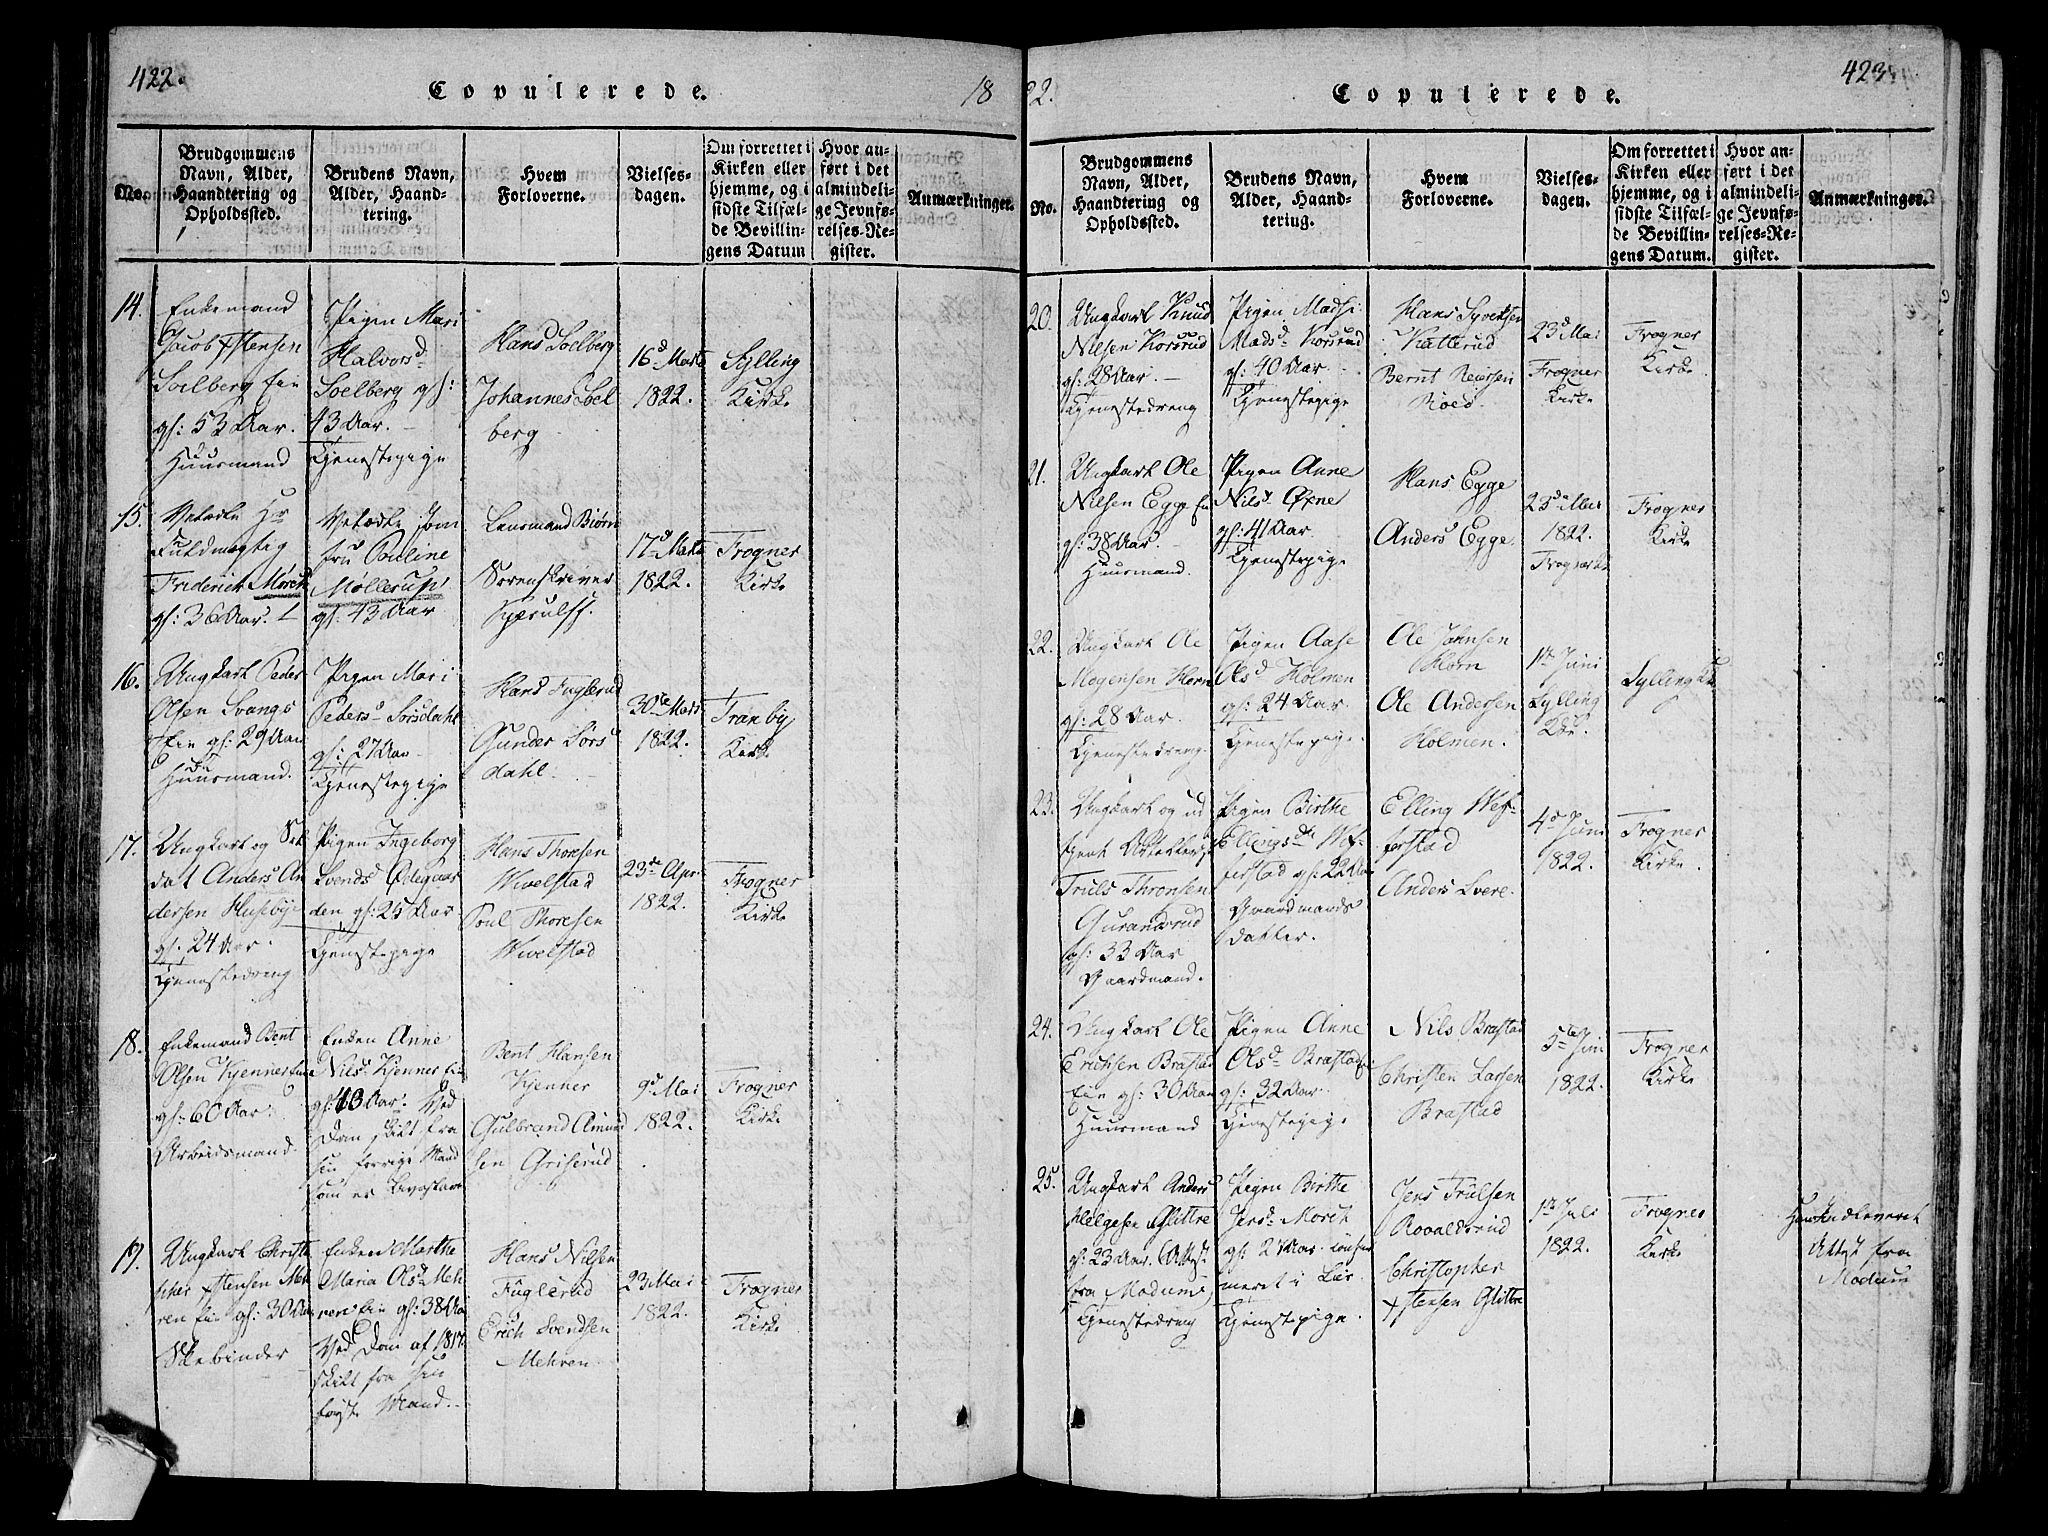 422.
Copulerede.
18
No.
Brudgommens
Navn, Alder,
Haandtering og
Opholdssted.
Brudens Navn,
Alder, Haand-
tering.
Hvem
Forloverne.
Vielses-
dagen.
Om forrettet i
Kirken eller
hjemme, og i
sidste Tilfæl-
de Bevillin-
gens Datum
Hvor an-
ført i det
almindeli-
ge Jevnfø-
relses-Re-
gister.
Anmærkninger.
14.
Enkemand
Jacob Estensen
Solberg Eie
gl: 53 Aar.
Huusmand
Pigen Mari
Halvorsd.
Solberg gl:
43 Aar.
Tjenestepige
Hans Solberg
Johannes Sol
berg
16d Marts
1822.
Sylling
Kirke
15.
Velædle Hr
Fuldmægtig
Friderich Mørch
gl: 36 Aar.
Velædle Jom
fru Pouline
Møllerup
gl: 43 Aar
Lensmand Biørn
Sorenskriver
17d Marts
1822.
Frogner
Kirke
16.
Ungkarl Peder
Olsen Svangs
Eie gl: 29 Aar
Huusmand.
Pigen Mari
Pedersd Sørsdahl
gl: 27 Aar
Tjenestepige
Hans Fuglerud
Gunder Sørs
dahl.
30te Marts
1822.
Tranby
Kirke
17.
Ungkarl og Sol
dat Anders An
dersen Huseby
gl: 24 Aar.
Tjenestedreng
Pigen Ingeborg
Svendsd Ødegaar
den gl: 25 Aar
Tjenestepige
Hans Thoresen
Wivelstad
Poul Thoresen
Wivelstad
23de Apr.
1822.
Frogner
Kirke
18.
Enkemand Bent
Olsen Kjenner Eie
gl: 60 Aar.
Arbeidsmand.
Enken Anne
Nilsd. Kjenner Eie
gl: 43 Aar. Ved
Dom skilt fra
sin forrige Mand
som er
Bent Hansen
Kjenner
Gulbrand Amund
sen Griserud
9d Mai
1822.
Frogner
Kirke
19.
Ungkarl Christo
pher Estensen Meh
ren Eie gl: 30 Aar
Skobinder
Enken Marthe
Maria Olsd Meh
rens Eie gl: 38 Aar
Ved Dom af 1817
skilt fra sin
første Mand.
Hans Nilsen
Fuglerud
Erich Svendsen
Mehren.
23 Mai
1822.
Frogner
Kirke
22.
Copulerede.
423
No.
Brudgommens
Navn, Alder,
Haandtering og
Opholdssted.
Brudens Navn,
Alder, Haand-
tering.
Hvem
Forloverne.
Vielses-
dagen.
Om forrettet i
Kirken eller
hjemme, og i
sidste Tilfæl-
de Bevillin-
gens Datum.
Hvor an-
ført i det
almindeli-
ge Jevnfø-
relses-Re-
gister.
Anmærkninger.
20.
Ungkarl Knud
Nilsen Korsrud
gl: 28 Aar.
Tjenestedreng
Pigen Madsi
Madsd Korsrud
gl: 40 Aar.
Tjenestepige
Hans Syvertsen
Katterud
Bernt Reiersen
Roed.
23d Mai
Frogner
Kirke
Frogner
Kirke
21.
Ungkarl Ole
Nilsen Egge Eie
gl: 38 Aar.
Huusmand.
Pigen Anne
Nilsd Øxne
gl: 41 Aar
Tjenestepige
Hans Egge
Anders Egge
23de Mai
1822.
Frogner
Kirke
22.
Ungkarl Ole
Mogensen Horn
gl: 28 Aar.
Tjenestedreng.
Pigen Aase
Olsd Holmen
gl: 24 Aar.
Tjenestepige.
Ole Johnsen
Horn
Ole Andersen
Holmen.
1ste Juni
Sylling
Sylling K
23.
Ungkarl og ud
tjent Artillerist
Truls Thronsen
Gurandsrud
gl: 33 Aar
Gaardmand.
Pigen Birthe
Ellingsdtr Wef-
ferstad gl: 22 Aar
Gaardmands
datter.
Elling Wef-
ferstad
Anders Svere.
4de Juni
1822.
Frogner
Kirke.
24.
Ungkarl Ole
Erichsen Brastad
Eie gl: 30 Aar
Huusmand
Pigen Anne
Olsd Brastad
gl: 32 Aar.
Tjenestepige
Nils Brastad
Christen Larsen
Brastad
5te Juni
1822.
Frogner
Kirke
25.
Ungkarl Anders
Helgesen Glittre
gl: 23 Aar. Attest
fra Modum
Tjenestedreng
Pigen Birthe
Jensd Morch
gl: 24 Aar. Confir
meret i Lier.
Tjenestepige.
Jens Trulsen
Rovaldsrud
Christopher
Estensen Glittre
1ste Juli
1822.
Frogner
Kirke
Han indleveret
Attest fra
Modum